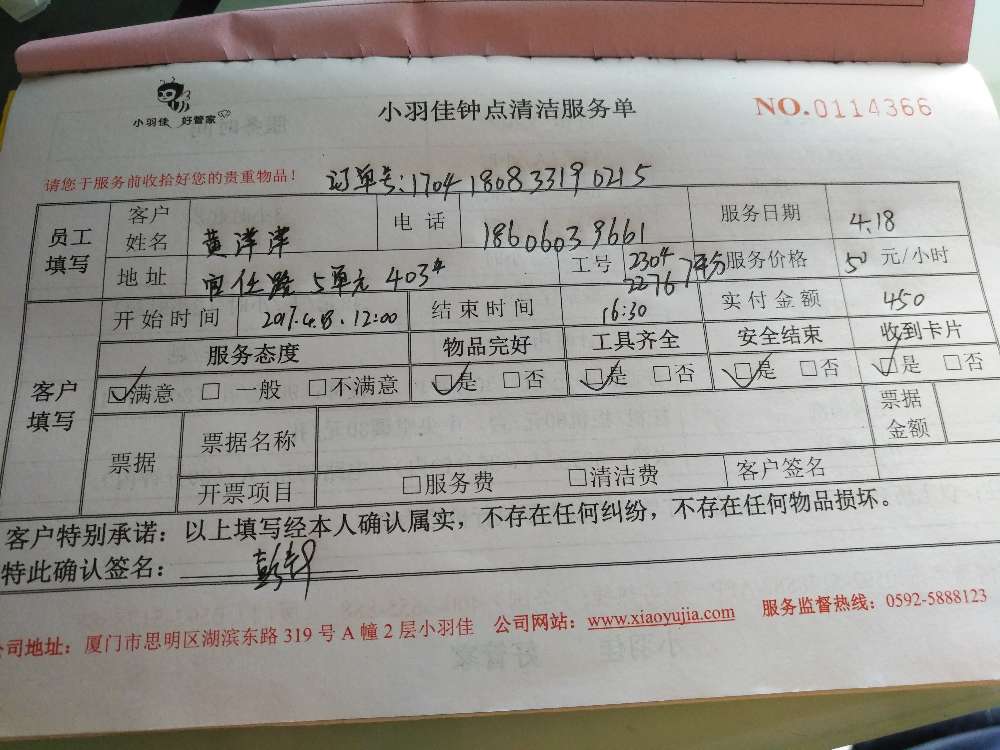 小羽佳 好管家
小羽佳钟点清洁服务单
NO.0114366
请您于服务前收拾好您的贵重物品！
订单号：1704180833190215
员工填写 客户姓名 黄洋洋 电话 18606039661 服务日期 4.18
地址 官任路 5单元 403 工号 2304 2276 服务价格 50 元/小时
客户填写 开始时间 2017.4.18. 12:00 结束时间 16:30 实付金额 450
服务态度 物品完好 工具齐全 安全结束 收到卡片
☑满意 □ 一般 □不满意 ☑是 □否 ☑是 □否 ☑是 □否 ☑是 □否
票据 票据名称 票据金额
开票项目 □服务费 □清洁费 客户签名
客户特别承诺：以上填写经本人确认属实，不存在任何纠纷，不存在任何物品损坏。
特此确认签名：
公司地址：厦门市思明区湖滨东路 319 号 A 幢 2 层小羽佳 公司网站：www.xiaoyujia.com 服务监督热线：0592-5888123